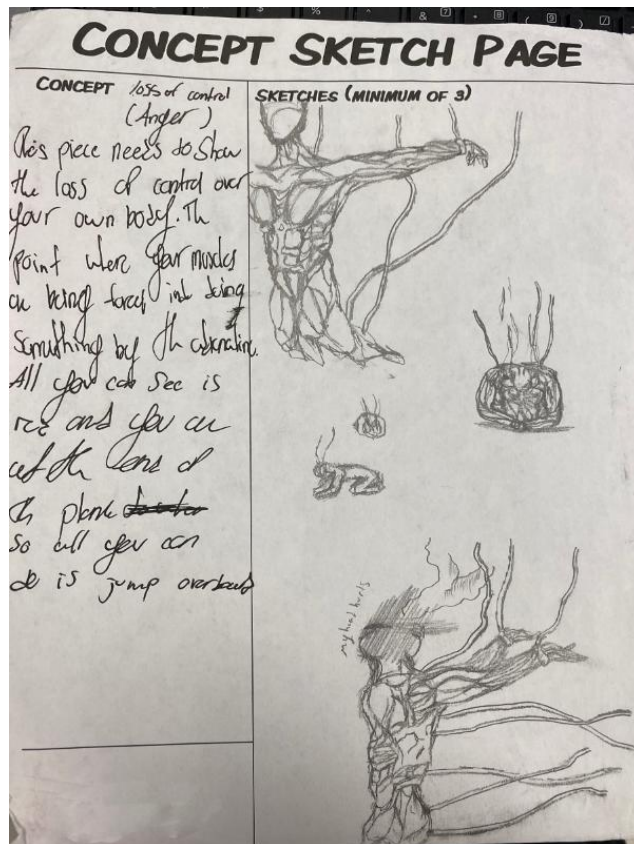 CONCEPT SKETCH PAGE
CONCEPT loss of control
(Anger)
SKETCHES (MINIMUM OF 3)
This piece needs to show
the loss of control over
your own body. Th
point where your muscles
are being forced into doing
something by th adrenaline.
All you can see is
red and you are
at the end of
th plank
so all you can
do is jump overboard
my head hurts